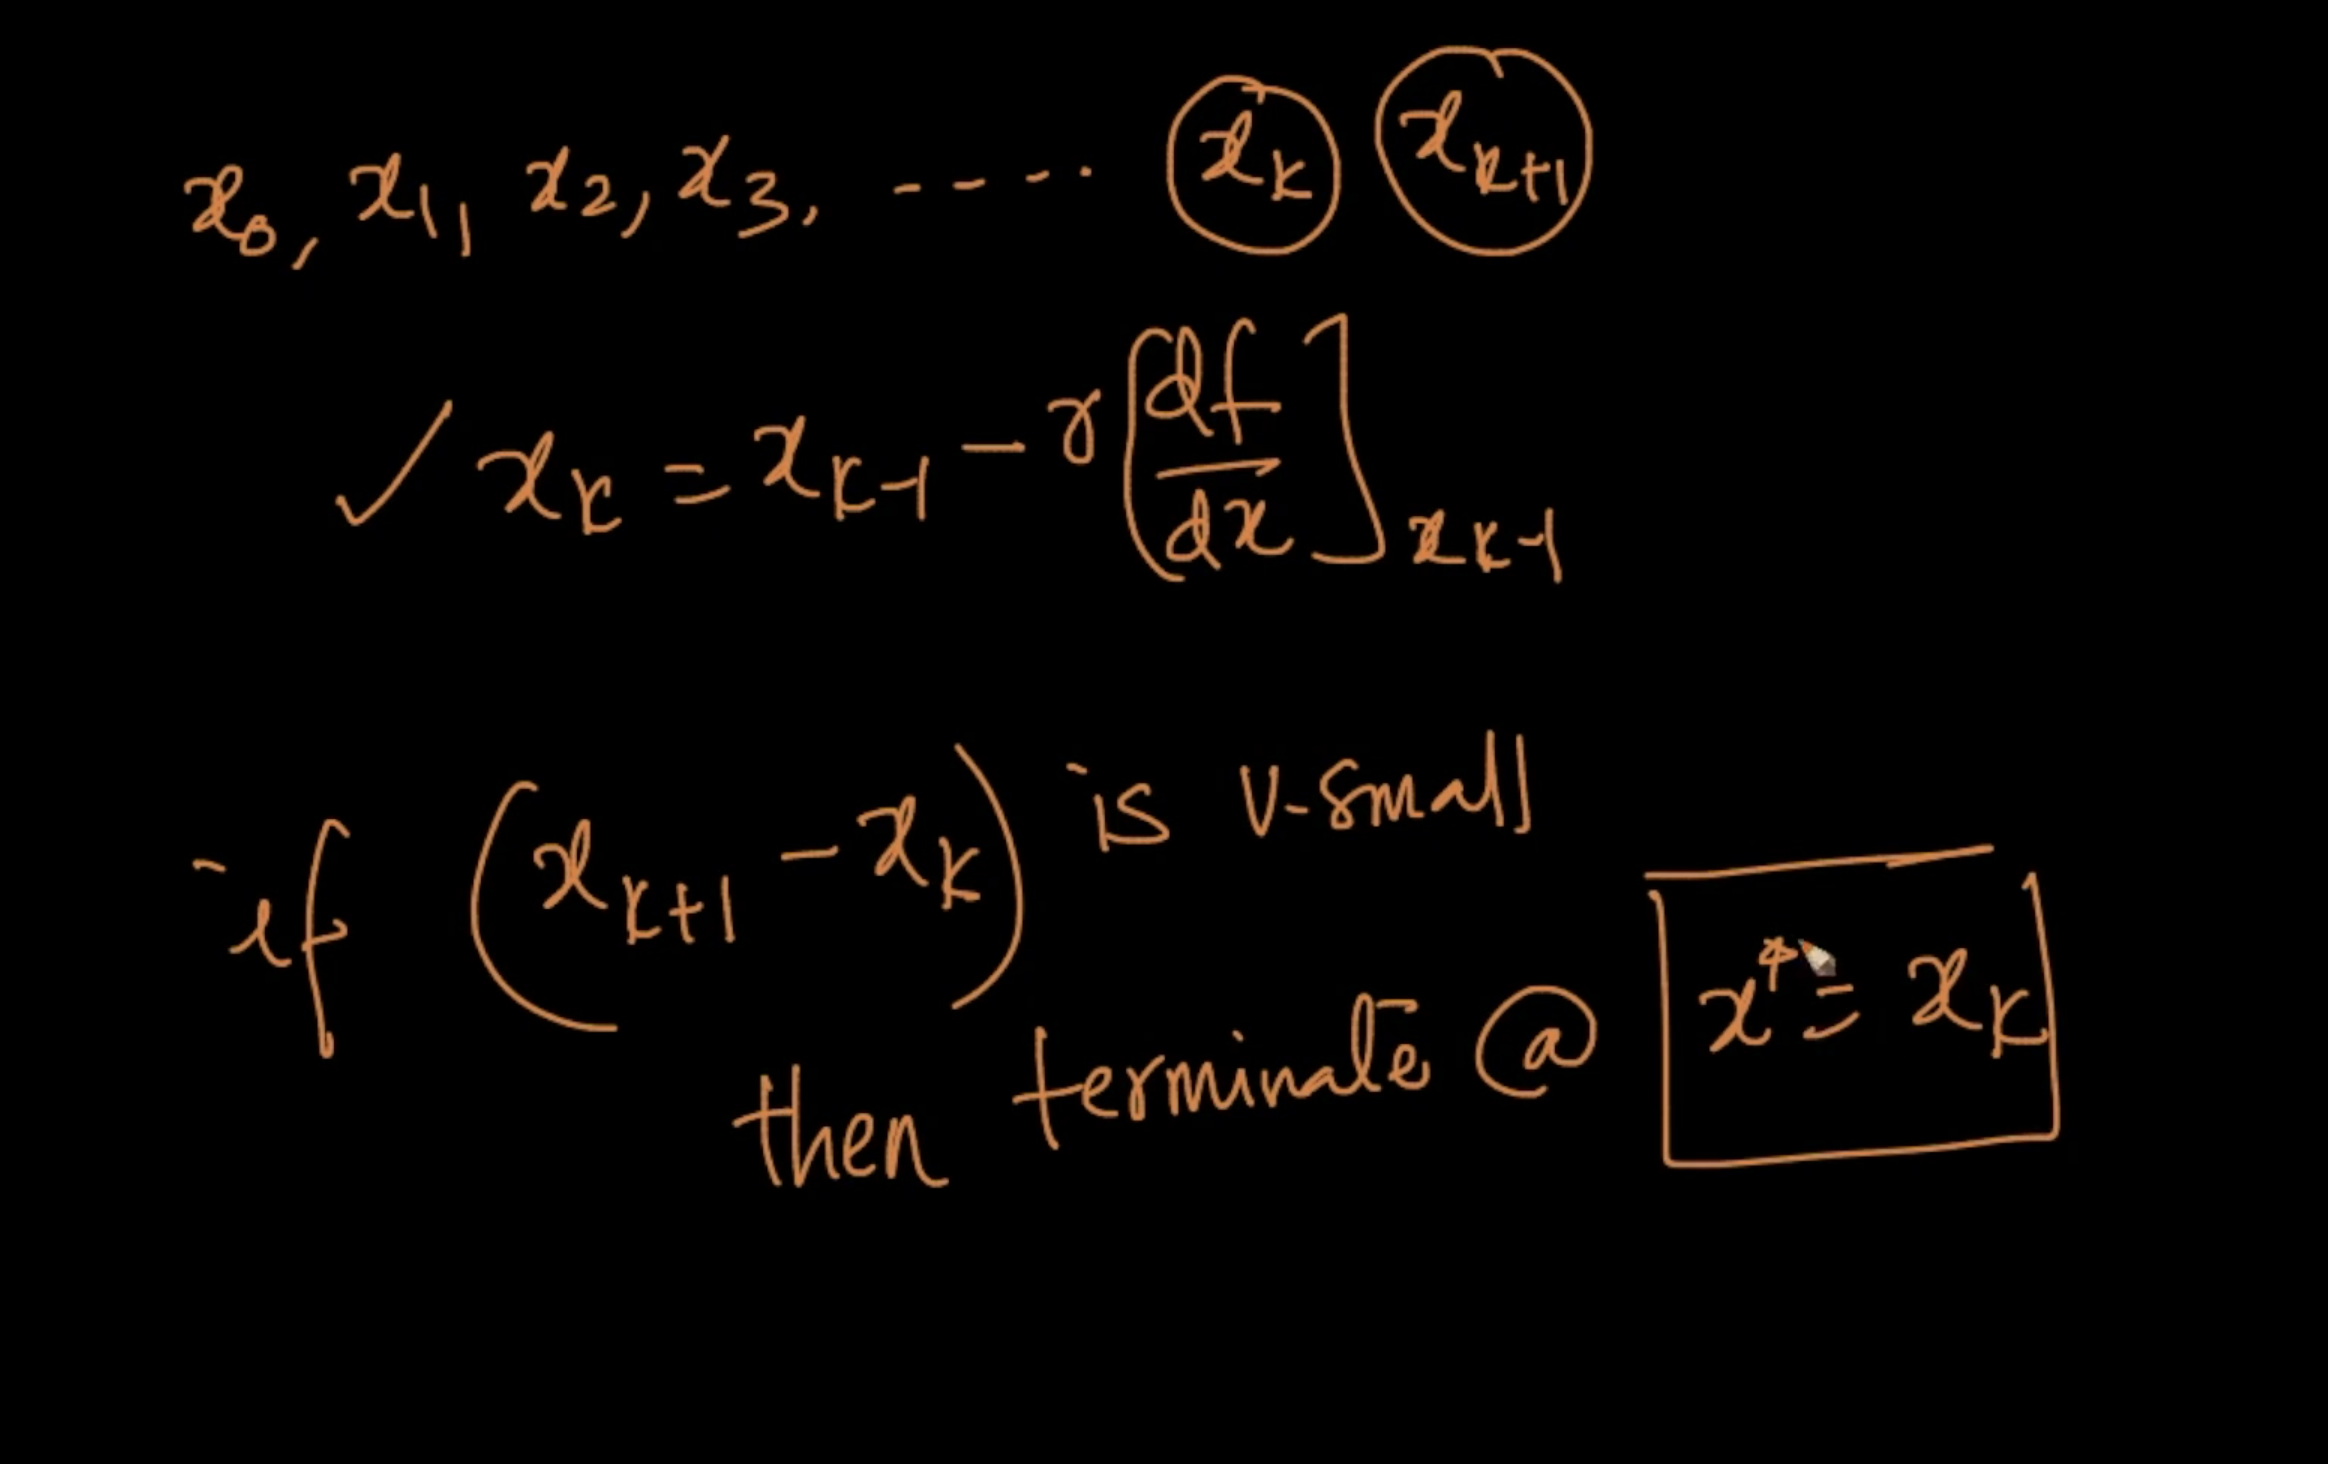 x₀, x₁, x₂, x₃, ---- xₖ xₖ₊₁
✓ xₖ = xₖ₋₁ - r [df/dx]ₓₖ₋₁
if (xₖ₊₁ - xₖ) is v-small
then terminate @ x* = xₖ